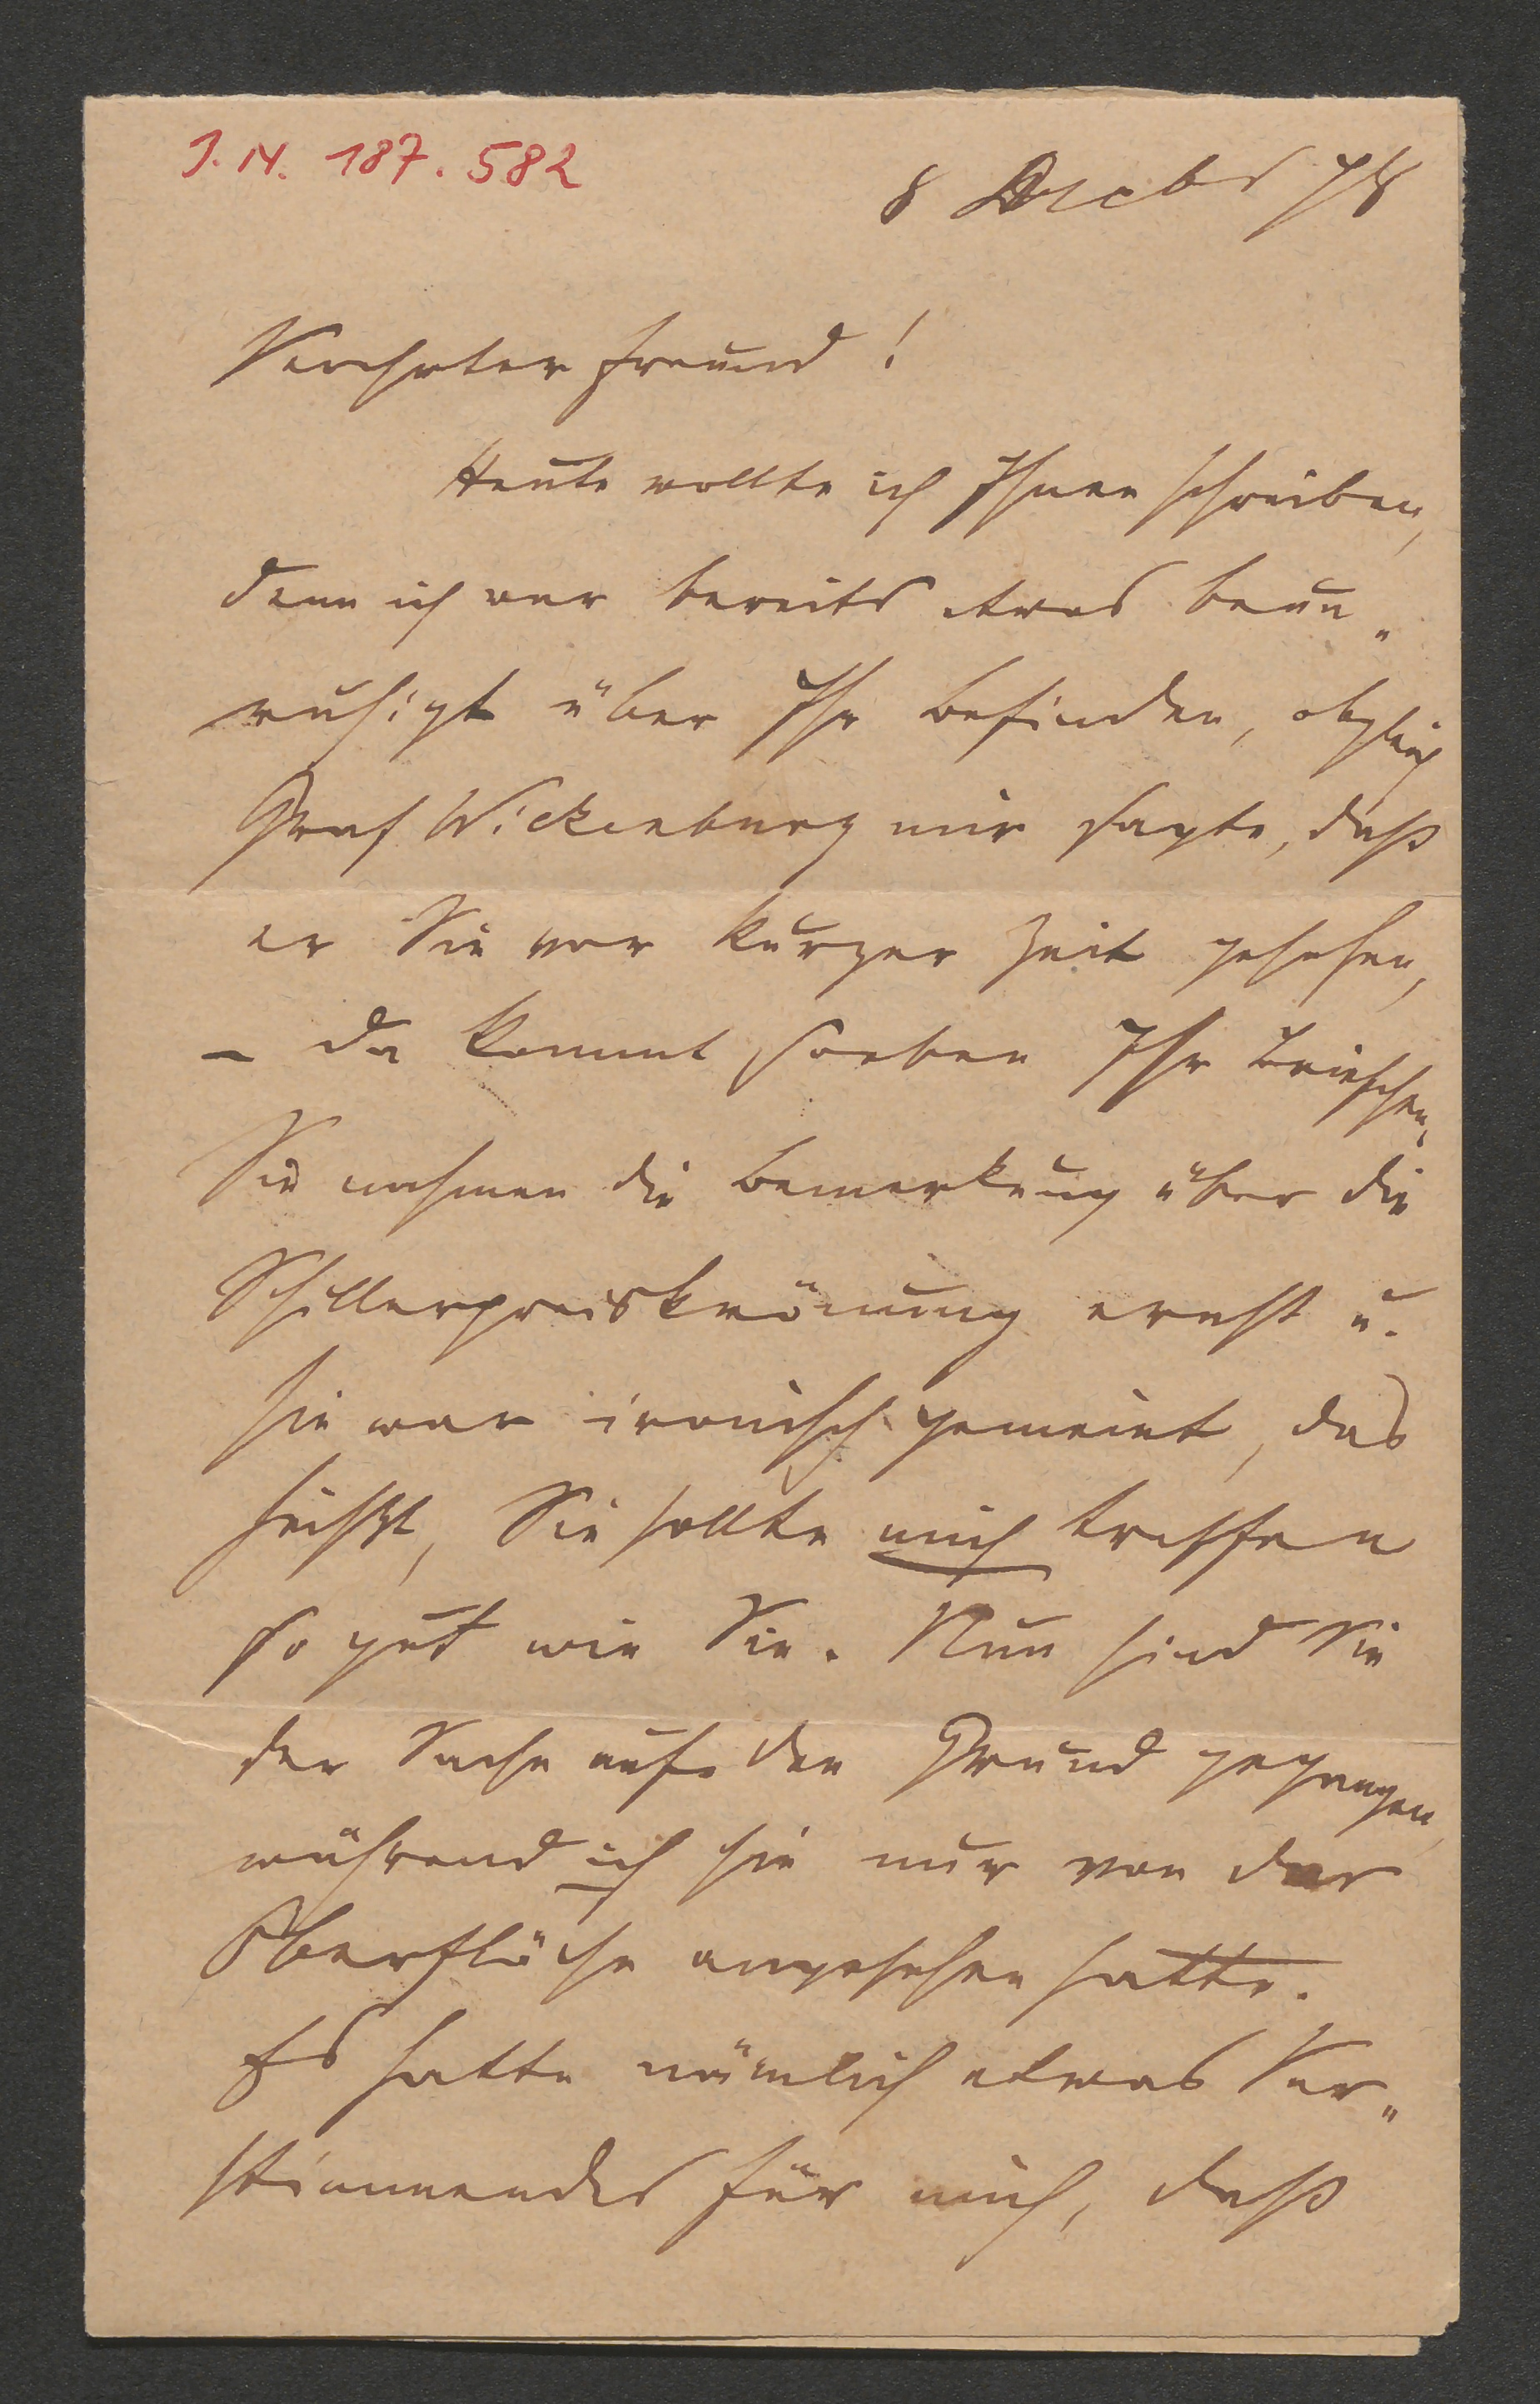 J. N. 187.582
8 Decbr 78
Verehrter Freund!
Heute wollte ich Ihnen schreiben,
denn ich war bereits etwas beun„
ruhigt über Ihr Befinden, obgleich
Graf Wickenburg mir sagte, daß
er Sie vor kurzer Zeit gesehen,
– da kommt soeben Ihr Briefchen,
Sie nahmen die Bemerkung über die
Schillerpreiskrönung ernst u.
sie war ironisch gemeint, das
heißt, Sie sollte mich treffen
so gut wie Sie. Nun sind Sie
der Sache auf den Grund gegangen,
während ich sie nur von der
Oberfläche angesehen hatte.
Es hatte nämlich etwas Ver„
stimmendes für mich, daß